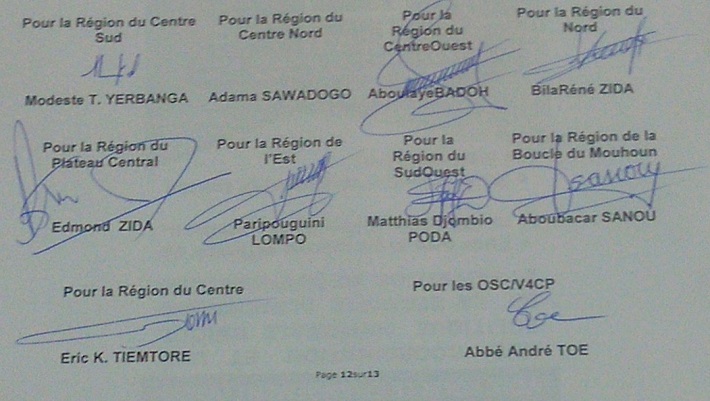 Pour la Région du Centre
Sud
Modeste T. YERBANGA
Pour la Région du
Centre Nord
Adama SAWADOGO
Pour la
Région du
CentreOuest
AboulayeBADOH
Pour la Région du
Nord
BilaRéné ZIDA
Pour la Région du
Plateau Central
Edmond ZIDA
Pour la Région de
l'Est
Paripouguini
LOMPO
Pour la
Région du
SudOuest
Matthias Djombio
PODA
Pour la Région de la
Boucle du Mouhoun
Sanou
Aboubacar SANOU
Pour la Région du Centre
Eric K. TIEMTORE
Pour les OSC/V4CP
Toe
Abbé André TOE
Page 12sur13